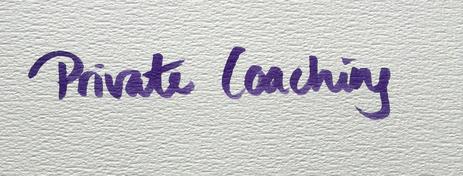 Private Coaching